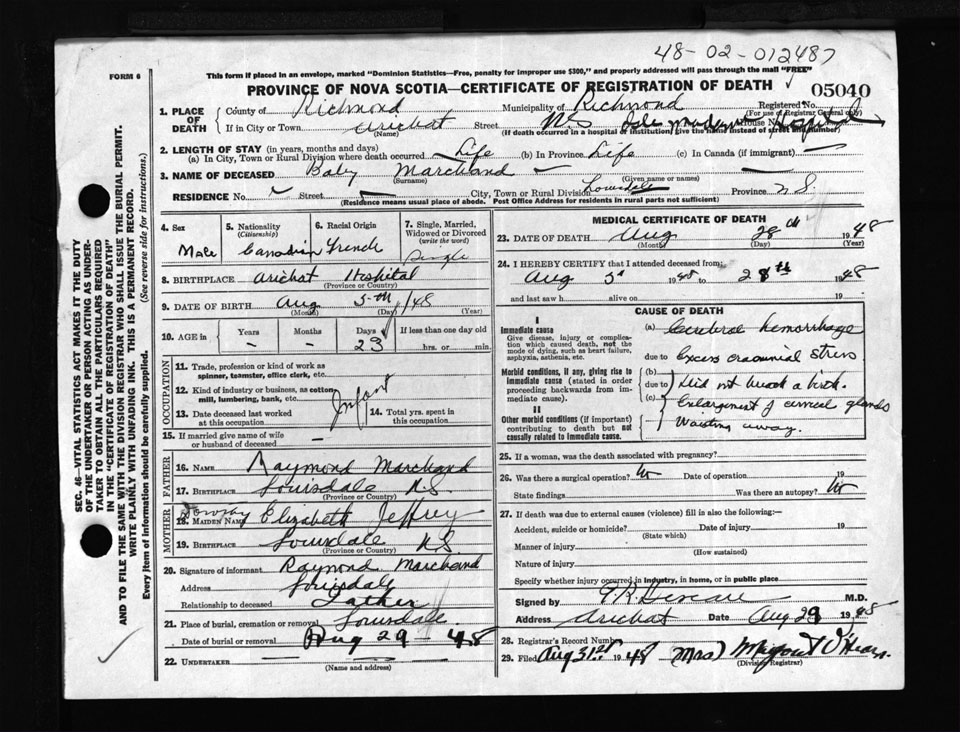 48-02-012487
FORM 6
This form if placed in an envelope, marked "Dominion Statistics—Free, penalty for improper use $300," and properly addressed will pass through the mail "FREE"
PROVINCE OF NOVA SCOTIA—CERTIFICATE OF REGISTRATION OF DEATH
05040
1. PLACE OF DEATH
County of Richmond Municipality of Richmond Registered No.
(For use of Registrar General only)
If in City or Town Arichat Street N.S Isle Madame House No. Hospital
(Name) (If death occurred in a hospital or institution, give the name instead of street and number)
2. LENGTH OF STAY (in years, months and days)
(a) In City, Town or Rural Division where death occurred Life (b) In Province Life (c) In Canada (if immigrant) —
3. NAME OF DECEASED Baby Marchand
(Surname) (Given name or names)
RESIDENCE No. Street City, Town or Rural Division Louisdale Province N.S.
(Residence means usual place of abode. Post Office Address for residents in rural parts not sufficient)
4. Sex
Male
5. Nationality
(Citizenship)
Canadian
6. Racial Origin
French
7. Single, Married, Widowed or Divorced
(write the word)
Single
8. BIRTHPLACE Arichat Hospital
(Province or Country)
9. DATE OF BIRTH Aug 5th /48
(Month) (Day) (Year)
10. AGE in
Years Months Days If less than one day old
— — 23 hrs. or min.
OCCUPATION
11. Trade, profession or kind of work as spinner, teamster, office clerk, etc.
12. Kind of industry or business, as cotton mill, lumbering, bank, etc.
Infant
13. Date deceased last worked at this occupation
14. Total yrs. spent in this occupation
15. If married give name of wife or husband of deceased —
FATHER
16. NAME Raymond Marchand
17. BIRTHPLACE Louisdale N.S.
(Province or Country)
MOTHER
18. MAIDEN NAME Elizabeth Jeffrey
19. BIRTHPLACE Louisdale N.S
(Province or Country)
20. Signature of informant Raymond Marchand
Address Louisdale
Relationship to deceased Father
21. Place of burial, cremation or removal Louisdale
Date of burial or removal Aug 29 1948
22. UNDERTAKER
(Name and address)
MEDICAL CERTIFICATE OF DEATH
23. DATE OF DEATH Aug 28th 1948
(Month) (Day) (Year)
24. I HEREBY CERTIFY that I attended deceased from:
Aug 5 1948 to 28th 1948
and last saw h alive on 19
CAUSE OF DEATH
I
Immediate cause
Give disease, injury or complication which caused death, not the mode of dying, such as heart failure, asphyxia, asthenia, etc.
(a) Cerebral hemorrhage
due to Excess craounial stress
Morbid conditions, if any, giving rise to immediate cause (stated in order proceeding backwards from immediate cause).
(b) due to Did not break a birth.
(c) Enlargement of cervical glands
II
Other morbid conditions (if important) contributing to death but not causally related to immediate cause.
Wasting away.
25. If a woman, was the death associated with pregnancy?
26. Was there a surgical operation? No Date of operation 19
State findings Was there an autopsy? No
27. If death was due to external causes (violence) fill in also the following:—
Accident, suicide or homicide? Date of injury 19
(State which)
Manner of injury
(How sustained)
Nature of injury
Specify whether injury occurred in industry, in home, or in public place
Signed by M.D.
Address Arichat Date Aug 29 1948
28. Registrar's Record Number
29. Filed Aug 31st 1948 (Mrs) Margaret O'Hearn
(Division Registrar)
SEC. 46—VITAL STATISTICS ACT MAKES IT THE DUTY
OF THE UNDERTAKER OR PERSON ACTING AS UNDER-
TAKER TO OBTAIN ALL THE PARTICULARS REQUIRED
IN THE "CERTIFICATE OF REGISTRATION OF DEATH"
AND TO FILE THE SAME WITH THE DIVISION REGISTRAR WHO SHALL ISSUE THE BURIAL PERMIT.
WRITE PLAINLY WITH UNFADING INK. THIS IS A PERMANENT RECORD.
Every item of information should be carefully supplied. (See reverse side for instructions.)